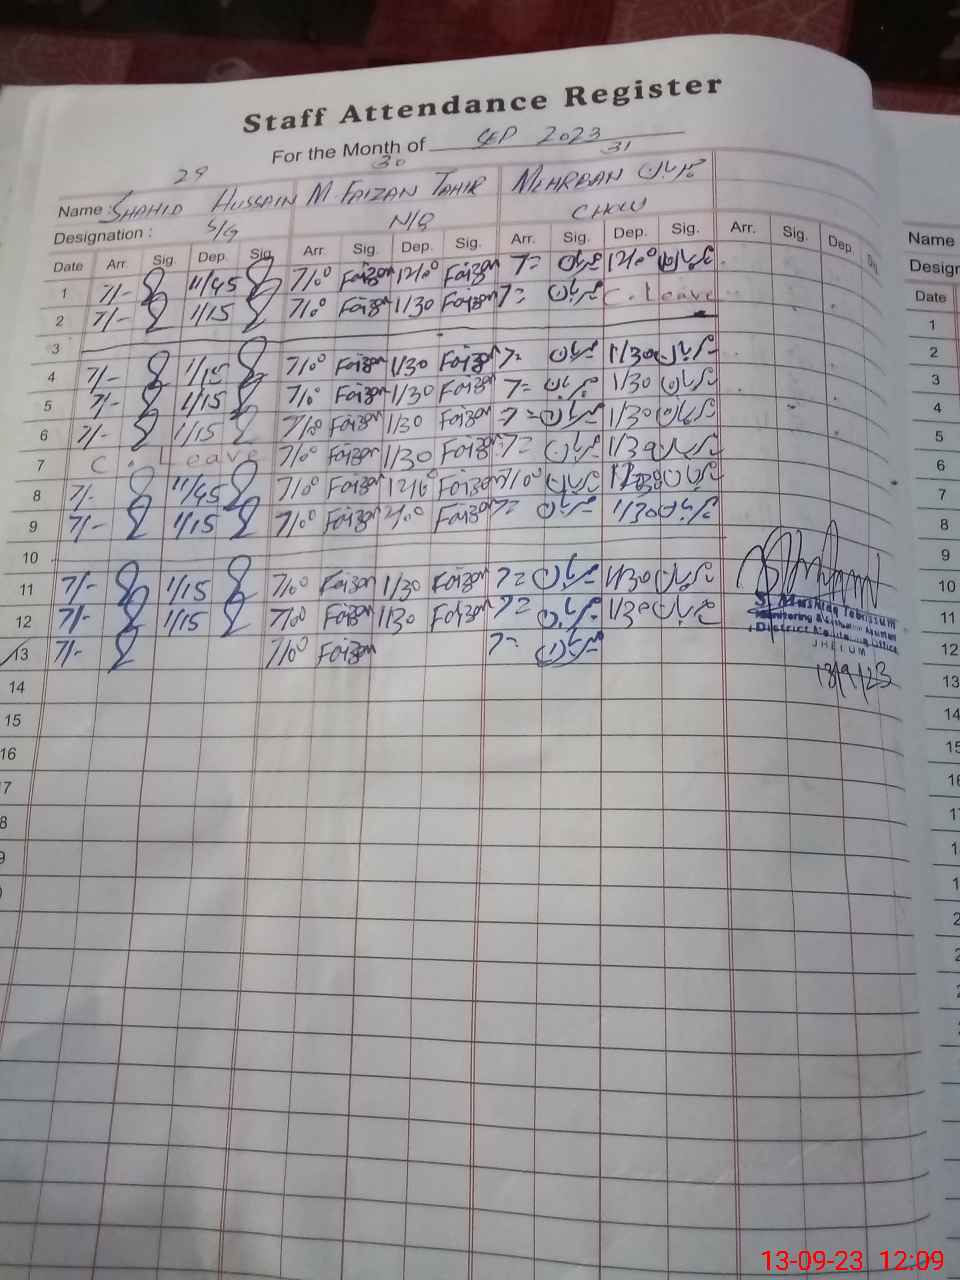 Staff Attendance Register
For the Month of SEP 2023
29 30 31
Name : SHAHID HUSSAIN M FAIZAN TAHIR MEHRBAN مہربان
Designation : S/G N/Q CHOW
Date Arr. Sig. Dep. Sig. Arr. Sig. Dep. Sig. Arr. Sig. Dep. Sig. Arr. Sig. Dep. Sig.
1 7/- 11/45 7/00 Faizan 12/00 Faizan 7= مہربان 12/00 مہربان
2 7/- 1/15 7/00 Faizan 1/30 Faizan 7= مہربان C. Leave
3
4 7/- 1/15 7/00 Faizan 1/30 Faizan 7= مہربان 1/30 مہربان
5 7/- 1/15 7/00 Faizan 1/30 Faizan 7= مہربان 1/30 مہربان
6 7/- 1/15 7/00 Faizan 1/30 Faizan 7= مہربان 1/30 مہربان
7 C. Leave 7/00 Faizan 1/30 Faizan 7= مہربان 1/30 مہربان
8 7/- 11/45 7/00 Faizan Faizan 7/00 مہربان مہربان
9 7/- 1/15 7/00 Faizan Faizan 7= مہربان 1/30 مہربان
10
11 7/- 1/15 7/00 Faizan 1/30 Faizan 7= مہربان 1/30 مہربان
12 7/- 1/15 7/00 Faizan 1/30 Faizan 7= مہربان 1/30 مہربان
13 7/- 7/00 Faizan 7= مہربان
14
15
16
7
8
9
S. Mushtaq Tabassum
Monitoring &
District
JHELUM
13/9/23
Name
Desigr
Date
1
2
3
4
5
6
7
8
9
10
11
12
13
14
15
16
13-09-23 12:09